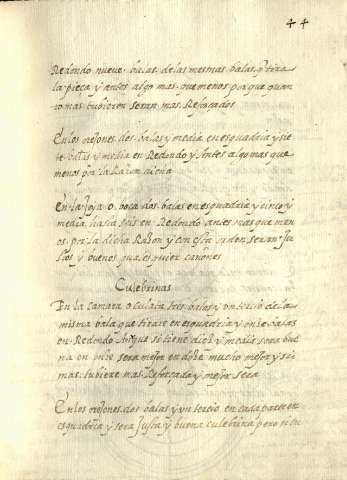 44
Redondo nueve balas de las mesmas balas q̃ tira
la pieça y antes algo mas que menos porque quan
to mas tubieren seran mas Reforçados
En los muñones dos balas y media en esquadria y sie
te balas y media en Redondo y Antes algo mas que
menos por la Razon dicha
En la Joya o boca dos balas en esquadria y cinco y
media hasta seis en Redondo antes mas que men
os por la dicha Razon y con esta orden seran Ju
stos y buenos qualesquier cañones
Culebrinas
En la camara o culata tres balas y un tercio de la
misma bala que tirare en esquadria y onse balas
en Redondo Aunque si tiene diez y media sera bue
na en onse sera mejor en doze mucho mejor y si
mas tubiere mas Reforçada y mejor sera
En los muñones dos balas y un tercio en cada parte en
esquadria y sera Justa y buena culebrina pero si tu